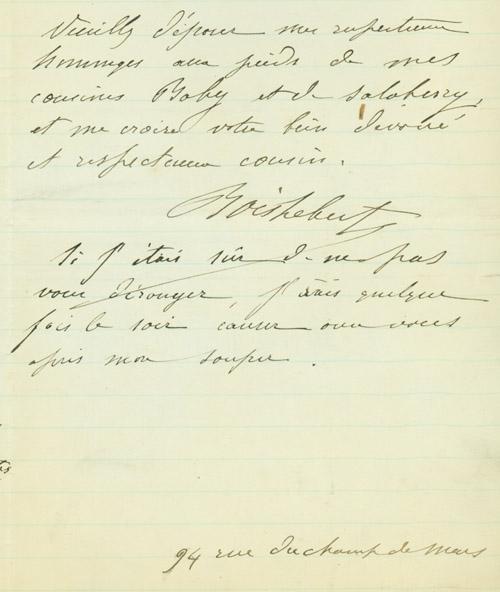 Veuillez déposer mes respectueux
hommages aux pieds de mes
cousines Baby et de Salaberry,
et me croire votre bien dévoué
et respectueux cousin.
Boishebert
Si j'étais sûr de ne pas
vous déranger, j'irais quelque
fois le soir causer avec vous
après mon souper.
94 rue du champ de mars